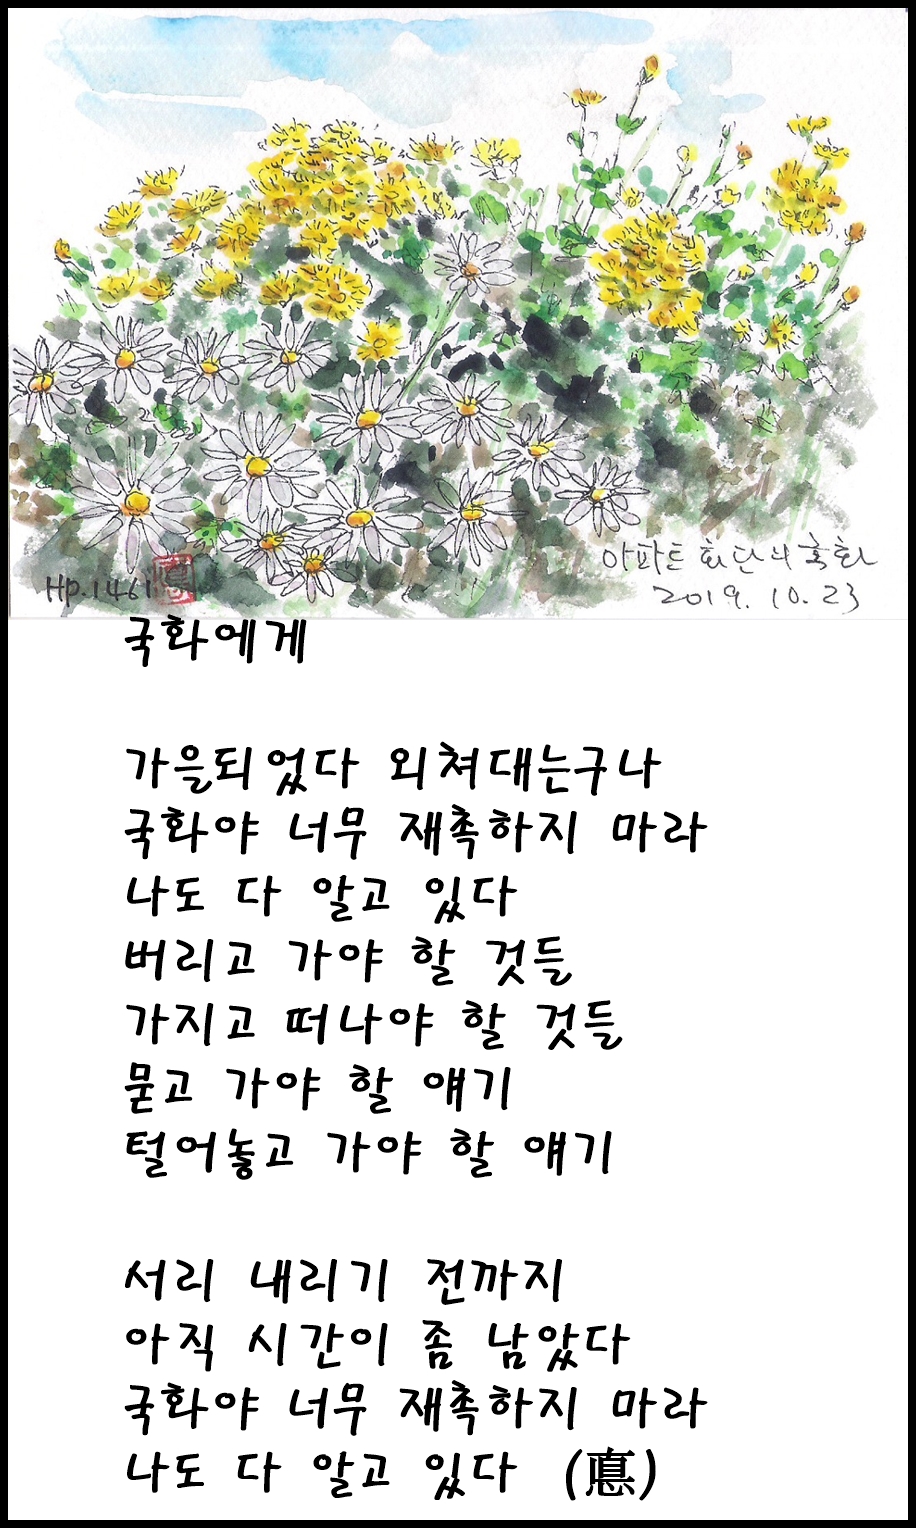 아파트 화단의 국화
2019. 10. 23
HP.1461
국화에게
가을되었다 외쳐대는구나
국화야 너무 재촉하지 마라
나도 다 알고 있다
버리고 가야 할 것들
가지고 떠나야 할 것들
묻고 가야 할 얘기
털어놓고 가야 할 얘기
서리 내리기 전까지
아직 시간이 좀 남았다
국화야 너무 재촉하지 마라
나도 다 알고 있다 (悳)